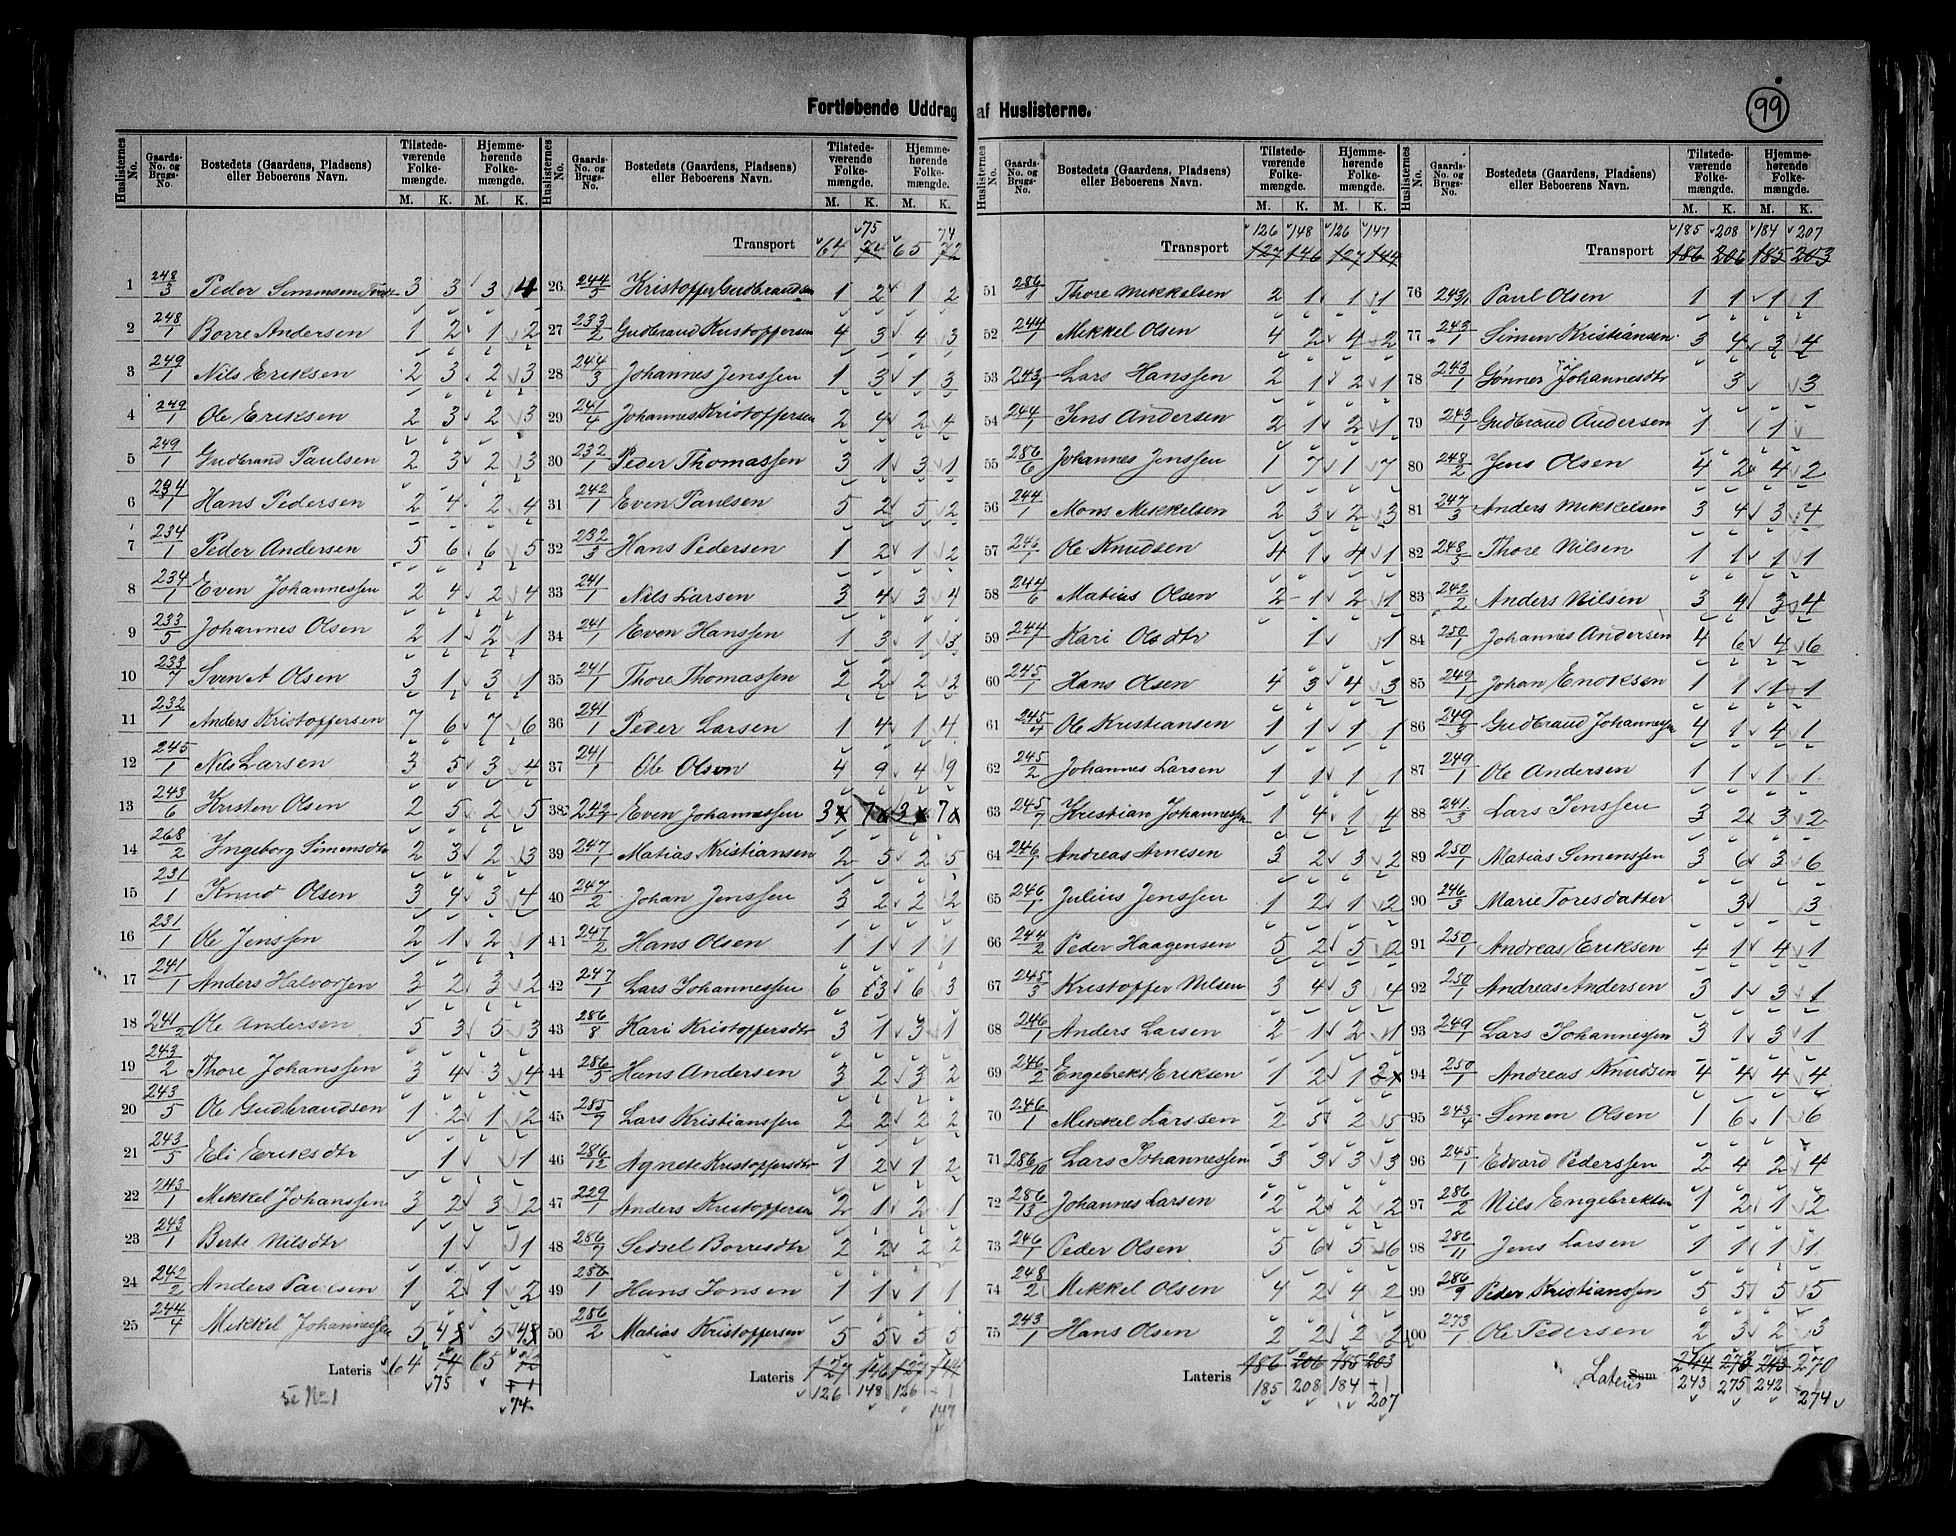 99
Fortløbende Uddrag af Huslisterne.
Huslisternes No. Gaards-No. og Brugs-No. Bostedets (Gaardens, Pladsen) eller Beboerens Navn. Tilstedeværende Folkemængde. Hjemmehørende Folkemængde. M. K. M. K.
1 248/3 Peder 3 3 3 4
2 248/1 Borre Andersen 1 2 1 2
3 249/1 Nils Eriksen 2 3 2 3
4 249/1 Ole Eriksen 2 3 2 3
5 249/1 Gudbrand Paulsen 2 3 2 3
6 234/1 Hans Pedersen 2 4 2 4
7 234/1 Peder Andersen 5 6 6 5
8 234/1 Even Johannessen 2 4 2 4
9 233/5 Johannes Olsen 2 1 2 1
10 233/7 Sven A Olsen 3 1 3 1
11 232/1 Anders Kristoffersen 7 6 7 6
12 245/1 Nils Larsen 3 5 3 4
13 243/6 Kristen Olsen 2 5 2 5
14 268/2 Ingeborg Simensdtr 2 3 2 3
15 231/1 Knud Olsen 3 4 3 4
16 231/1 Ole Jenssen 2 1 2 1
17 241/1 Anders Halvorsen 3 2 3 2
18 241/2 Ole Andersen 5 3 5 3
19 243/2 Thore Johanssen 3 4 3 4
20 243/5 Ole Gudbrandsen 1 2 1 2
21 243/5 Eli Eriksdtr 1 1
22 243/1 Mikkel Johanssen 3 2 3 2
23 243/1 Berte Nilsdtr 1 1
24 242/2 Anders Paulsen 1 2 1 2
25 244/4 Mikkel Johannessen 5 4 5 4
Lateris 64 74 65 72
75 +1
74
Transport 64 74 65 72
75 74
26 244/5 Kristoffer Gudbrandsen 1 2 1 2
27 233/2 Gudbrand Kristoffersen 4 3 4 3
28 244/3 Johannes Jenssen 1 3 1 3
29 241/4 Johannes Kristoffersen 2 4 2 4
30 232/1 Peder Thomassen 3 1 3 1
31 242/1 Even Paulsen 5 2 5 2
32 232/3 Hans Pedersen 1 2 1 2
33 241/1 Nils Larsen 3 4 3 4
34 241/1 Even Hanssen 1 3 1 3
35 241/1 Thore Thomassen 2 2 2 2
36 241/1 Peder Larsen 1 4 1 4
37 241/1 Ole Olsen 4 9 4 9
38 Even Johannessen 3x 7x 3x 7x
39 247/1 Matias Kristiansen 2 5 2 5
40 247/2 Johan Jenssen 3 2 2 2
41 247/2 Hans Olsen 1 1 1 1
42 247/1 Lars Johannessen 6 3 6 3
43 286/8 Kari Kristoffersdtr 3 1 3 1
44 286/5 Hans Andersen 3 2 3 2
45 285/7 Lars Kristianssen 2 2 2 2
46 286/12 Agnete Kristoffersdtr 1 2 1 2
47 229/1 Anders Kristoffersen 2 1 2 1
48 286/7 Sidsel Borresdtr 2 2 2 2
49 286/1 Hans Jonsen 1 1 1 1
50 286/2 Matias Kristoffersen 5 5 5 5
Lateris 127 146 127 144
126 148 126 +1
147
Transport 127 146 127 144
126 148 126 147
51 286/1 Thore Mikkelsen 2 1 1 1
52 244/1 Mikkel Olsen 4 2 4 2
53 243/1 Lars Hanssen 2 1 2 1
54 244/1 Jens Andersen 2 1 2 1
55 286/6 Johannes Jenssen 1 7 1 7
56 244/1 Mons Mikkelsen 2 3 2 3
57 246/1 Ole Knudsen 4 1 4 1
58 244/6 Matias Olsen 2 1 2 1
59 244/1 Kari Olsdtr 1 1
60 245/1 Hans Olsen 4 3 4 3
61 245/4 Ole Kristiansen 1 1 1 1
62 245/2 Johannes Larsen 1 1 1 1
63 245/7 Kristian Johannessen 1 4 1 4
64 246/1 Andreas Arnesen 3 2 3 2
65 246/1 Julius Jenssen 1 2 1 2
66 244/2 Peder Haagensen 5 2 5 2
67 245/3 Kristoffer Nilsen 3 4 3 4
68 246/1 Anders Larsen 2 1 2 1
69 246/2 Engebrekt Eriksen 1 2 1 2x
70 246/1 Mikkel Larssen 2 5 2 5
71 286/10 Lars Johannessen 3 3 3 3
72 286/13 Johannes Larsen 2 2 2 2
73 246/1 Peder Olsen 5 6 5 6
74 248/2 Mikkel Olsen 4 2 4 2
75 243/1 Hans Olsen 2 2 2 2
Lateris 186 206 185 203
185 208 184 +1
207
Transport 186 206 185 203
185 208 184 207
76 243/1 Paul Olsen 1 1 1 1
77 243/1 Simen Kristiansen 3 4 3 4
78 243/1 Gønner Johannesdtr 3 3
79 243/1 Gudbrand Andersen 1 1
80 248/2 Jens Olsen 4 2 4 2
81 247/3 Anders Mikkelsen 3 4 3 4
82 248/5 Thore Nilsen 1 1 1 1
83 242/2 Anders Nilsen 3 4 3 4
84 250/1 Johannes Andersen 4 6 4 6
85 249/1 Johan Enoksen 1 1 1 1
86 249/3 Gudbrand Johannessen 4 1 4 1
87 249/1 Ole Andersen 1 1 1 1
88 241/3 Lars Jenssen 3 2 3 2
89 250/1 Matias Simenssen 3 6 3 6
90 246/3 Marie Toresdatter 3 3
91 250/1 Andreas Eriksen 4 1 4 1
92 250/1 Andreas Andersen 3 1 3 1
93 249/1 Lars Johannessen 3 1 3 1
94 250/1 Andreas Knudsen 4 4 4 4
95 243/4 Simen Olsen 1 6 1 6
96 245/1 Edvard Pederssen 2 4 2 4
97 286/2 Nils Engebretsen 1 2 1 2
98 286/11 Jens Larsen 1 1 1 1
99 286/9 Peder Kristianssen 5 5 5 5
100 273/1 Ole Pedersen 2 3 2 3
Lateris Sum 244 273 243 270
243 275 242 274